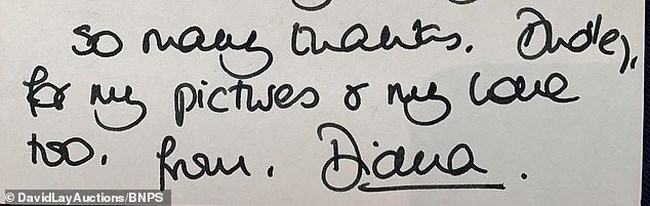 so many thanks. Dudley,
for my pictures & my love
too. from. Diana.
© DavidLayAuctions/BNPS